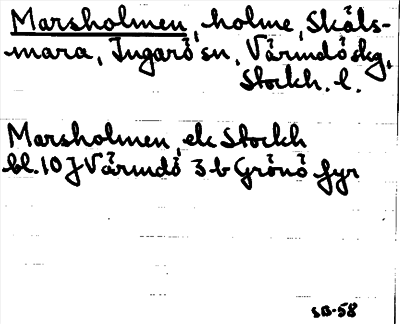 Marsholmen, holme, Skäls-
mara, Ingarö sn, Värmdö skg,
Stockh. l.
Marsholmen, ek Stockh
bl. 10 J Värmdö 3 b Grönö fyr
SB-58